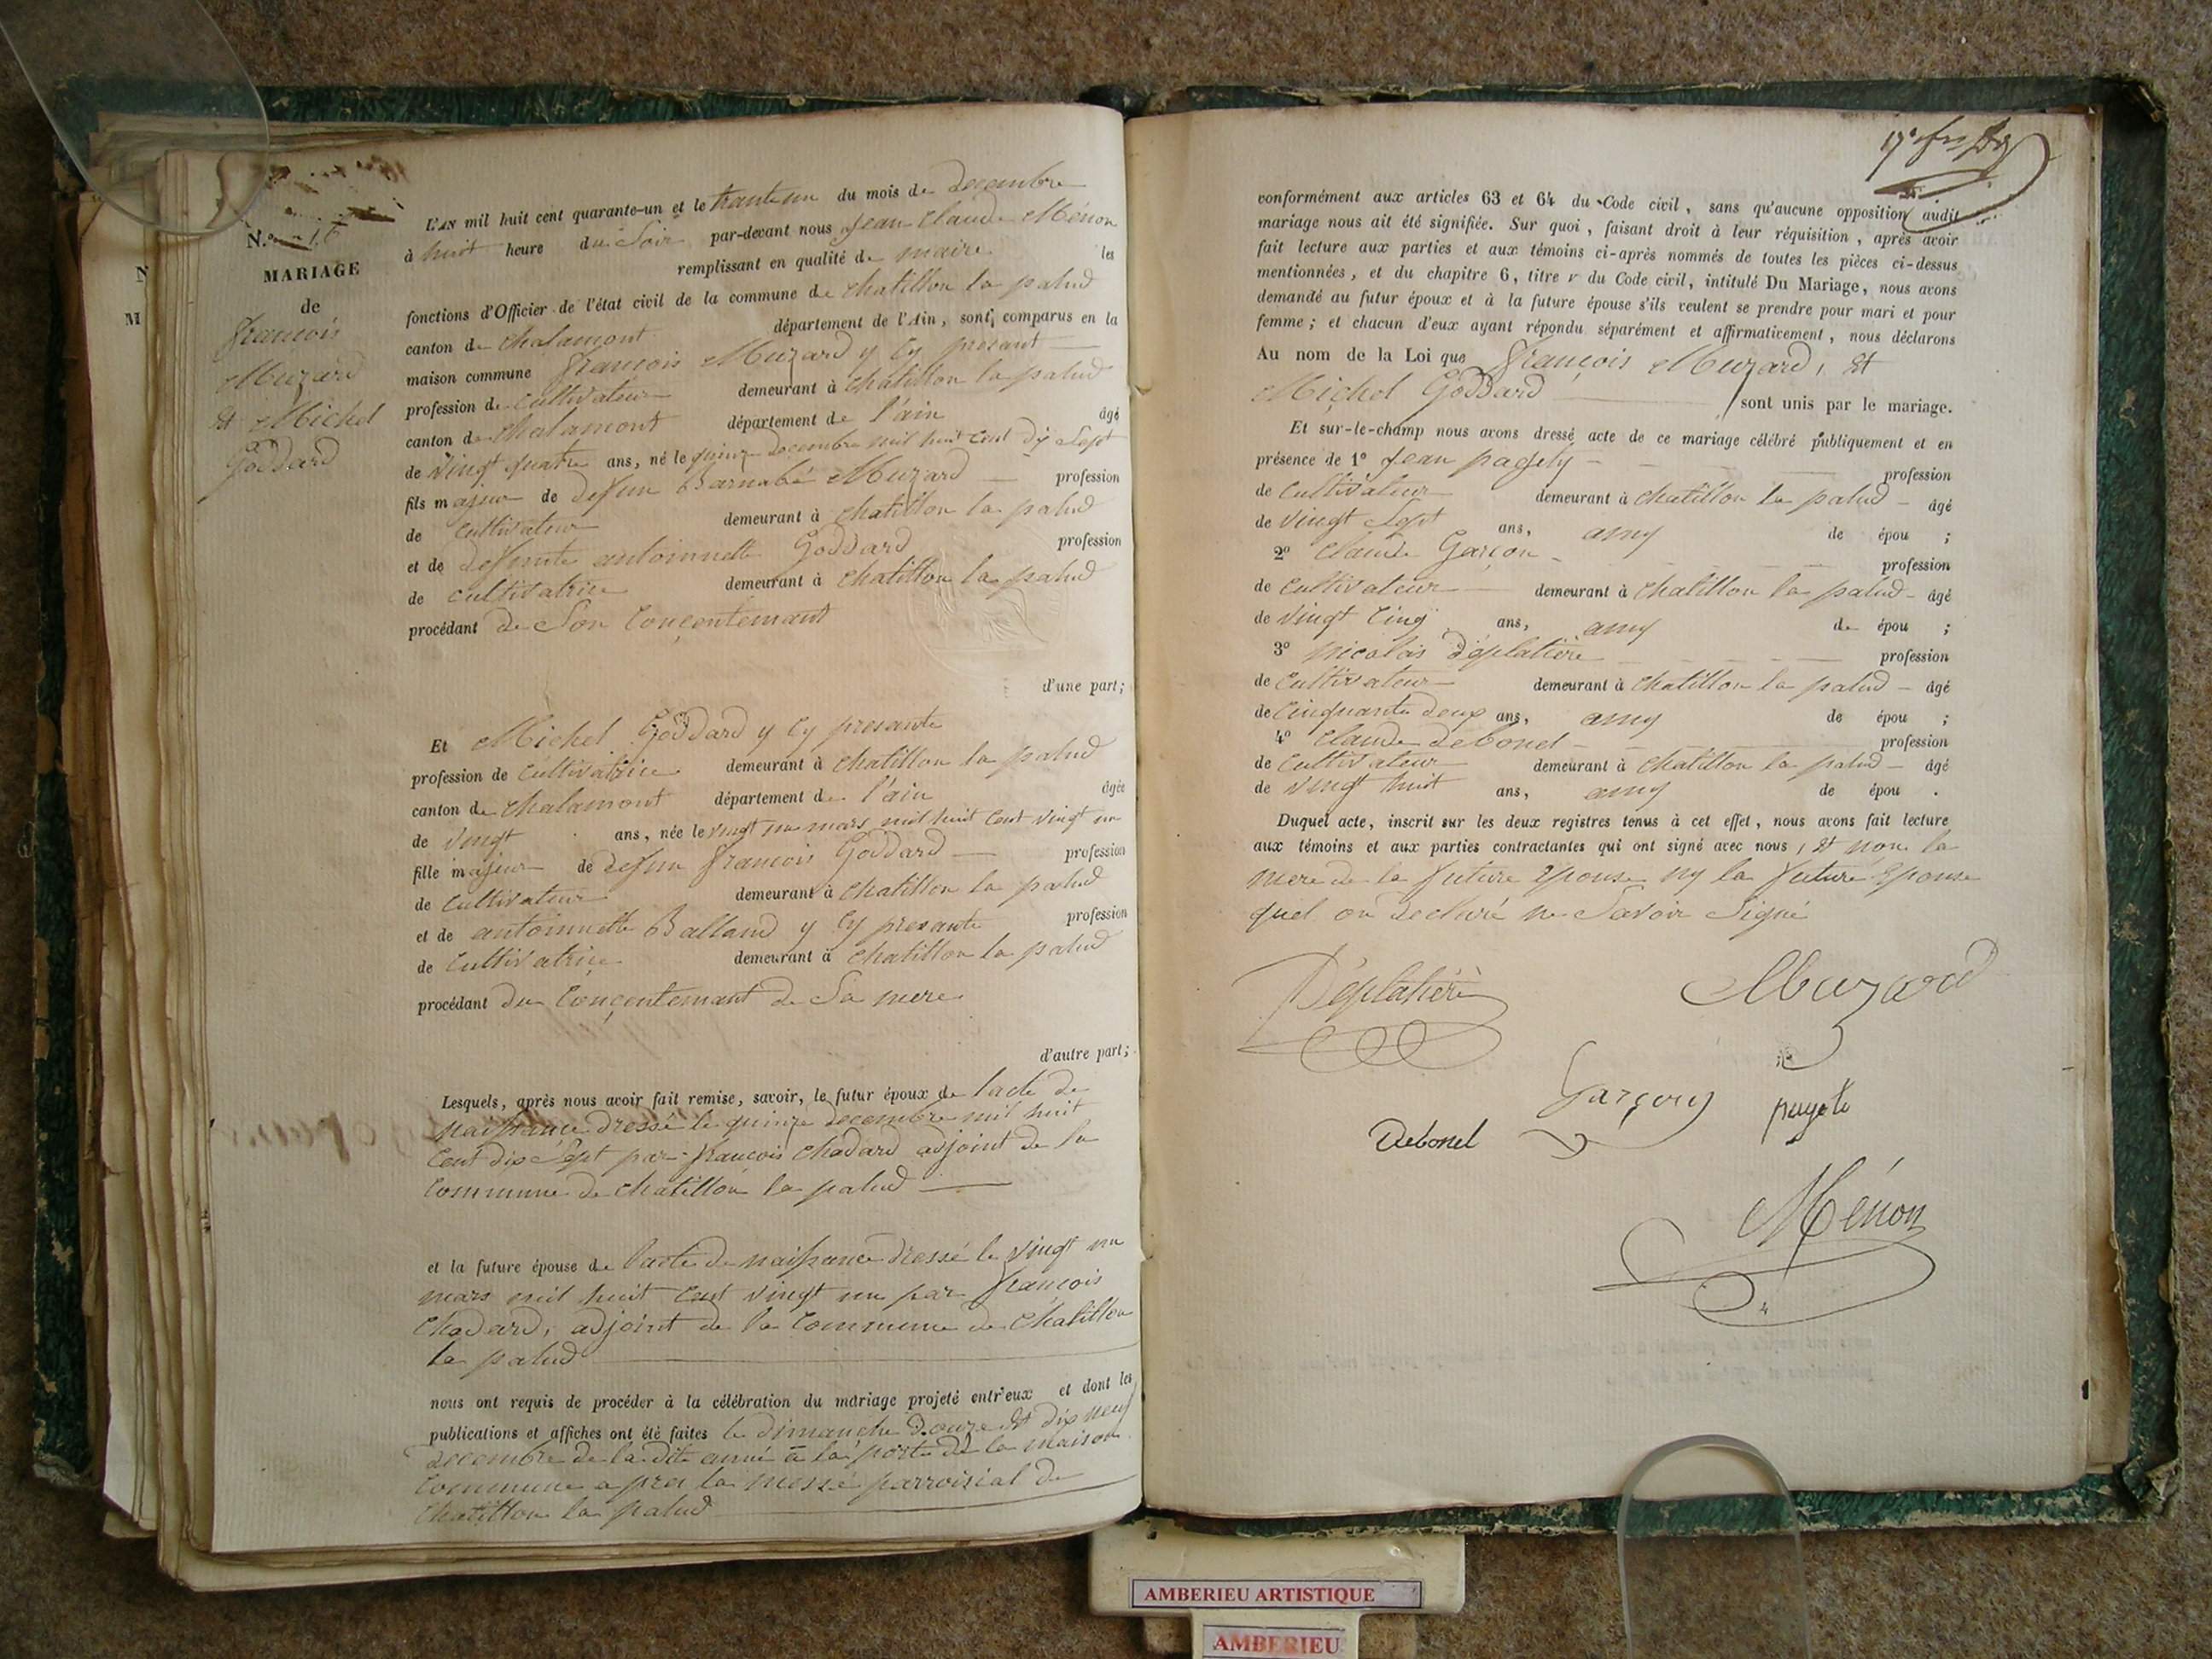 N.º 16
MARIAGE
de
françois
Muzard
et Michel
Goddard
L'AN mil huit cent quarante-un et le trante un du mois de decembre
à huit heure du Soir par-devant nous Jean Claude Ménon
remplissant en qualité de maire les
fonctions d'Officier de l'état civil de la commune de chatillon la palud
canton de chalamont département de l'Ain, sont comparus en la
maison commune françois Muzard y cy presant
profession de cultivateur demeurant à chatillon la palud
canton de chalamont département de l'ain âgé
de vingt quatre ans, né le quinze decembre mil huit cent dix Sept
fils majeur de defun Barnabé Muzard profession
de cultivateur demeurant à chatillon la palud
et de defunte antoinnette Goddard profession
de cultivatrice demeurant à chatillon la palud
procédant de Son Conçentemant
d'une part;
Et Michel Goddard y cy presante
profession de cultivatrice demeurant à chatillon la palud
canton de chalamont département de l'ain âgée
de vingt ans, née le vingt un mars mil huit cent vingt un
fille majeur de defun françois Goddard profession
de cultivateur demeurant à chatillon la palud
et de antoinnette Balland y cy presante profession
de cultivatrice demeurant à chatillon la palud
procédant du Conçentemant de Sa mere
d'autre part;
Lesquels, après nous avoir fait remise, savoir, le futur époux de lacte de
naissance dressé le quinze decembre mil huit
Cent dix Sept par françois Chadard adjoint de la
Commune de chatillon la palud
et la future épouse de l'acte de naissance dressé le vingt un
mars mil huit cent vingt un par françois
Chadard, adjoint de la Commune de Chatillon
la palud
nous ont requis de procéder à la célébration du mariage projeté entr'eux et dont les
publications et affiches ont été faites le dimanche Douze et dix neuf
decembre de la dite anné a la porte de la maison
Commune a pres la messe parroisial de
Chatillon la palud
conformément aux articles 63 et 64 du Code civil, sans qu'aucune opposition audit
mariage nous ait été signifiée. Sur quoi, faisant droit à leur réquisition, après avoir
fait lecture aux parties et aux témoins ci-après nommés de toutes les pièces ci-dessus
mentionnées, et du chapitre 6, titre v du Code civil, intitulé Du Mariage, nous avons
demandé au futur époux et à la future épouse s'ils veulent se prendre pour mari et pour
femme; et chacun d'eux ayant répondu séparément et affirmativement, nous déclarons
Au nom de la Loi que françois Muzard, et
Michel Goddard sont unis par le mariage.
Et sur-le-champ nous avons dressé acte de ce mariage célébré publiquement et en
présence de 1º Jean pagety profession
de cultivateur demeurant à chatillon la palud âgé
de vingt Sept ans, amy de épou ;
2º Claude Garçon profession
de cultivateur demeurant à chatillon la palud âgé
de vingt Cinq ans, amy de épou ;
3º nicolas déplatière profession
de cultivateur demeurant à chatillon la palud âgé
de Cinquante deux ans, amy de épou ;
4º Claude debonel profession
de cultivateur demeurant à chatillon la palud âgé
de vingt huit ans, amy de épou .
Duquel acte, inscrit sur les deux registres tenus à cet effet, nous avons fait lecture
aux témoins et aux parties contractantes qui ont signé avec nous, et non la
mere de la future Epouse ny la future Epouse
quel on declaré ne Savoir Signé
Déplatière
Muzard
Garçon
Debonel
Ménon
AMBERIEU ARTISTIQUE
AMBERIEU